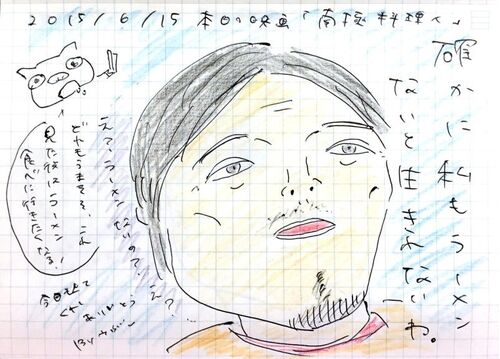 2015/6/15 本日の映画「南極料理人」
確かに私もラーメン
ないと生きれないわ。
えっ、ラーメンないの？え？…
どやもうまそう、これ
見た後はラーメン
食べに行きたくなる！
今日も見て
くれて
ありがとう